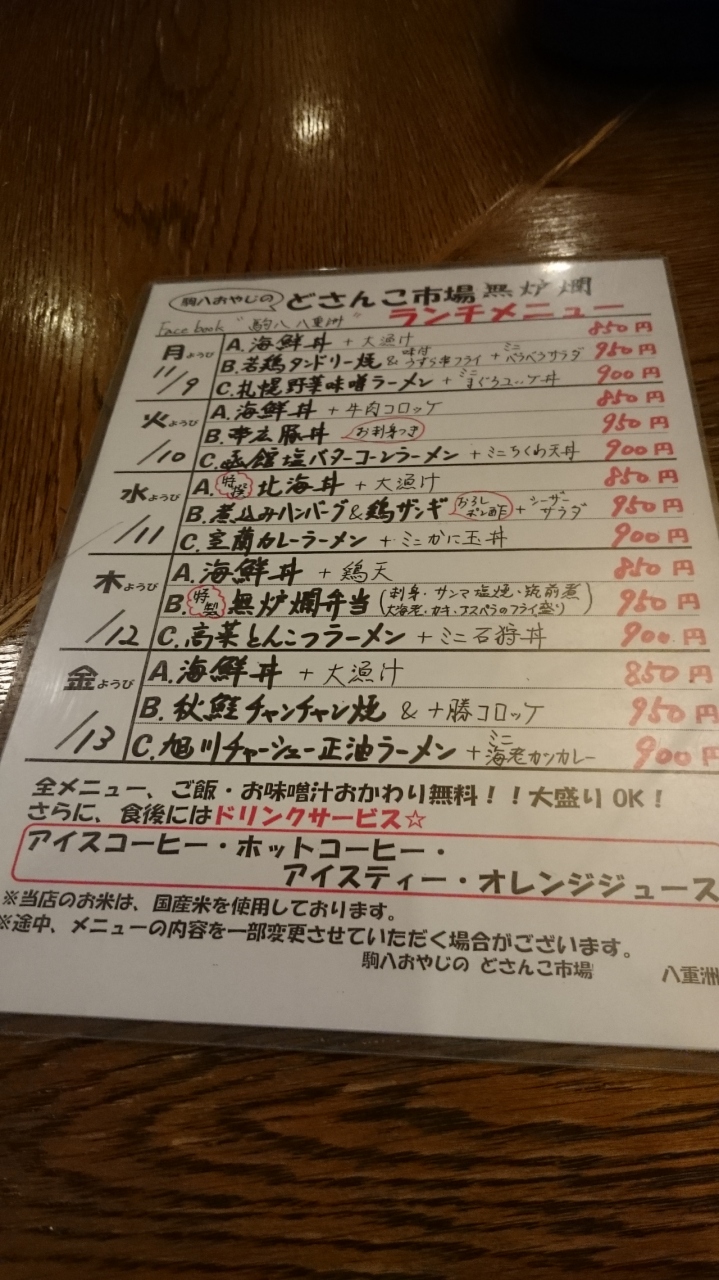 駒八おやじの どさんこ市場 無炉爛
Face book "駒八 八重洲" ランチメニュー
月ようび 11/9
A.海鮮丼 + 大漁汁 850円
B.若鶏タンドリー焼 & 味付うずら串フライ + ミニベラベラサラダ 950円
C.札幌野菜味噌ラーメン + ミニまぐろユッケ丼 900円
火ようび /10
A.海鮮丼 + 牛肉コロッケ 850円
B.帯広豚丼 お刺身つき 950円
C.函館塩バターコーンラーメン + ミニちくわ天丼 900円
水ようび /11
A.特撰 北海丼 + 大漁汁 850円
B.煮込みハンバーグ&鶏ザンギ おろしポン酢 + シーザーサラダ 950円
C.室蘭カレーラーメン + ミニかに玉丼 900円
木ようび /12
A.海鮮丼 + 鶏天 850円
B.特製 無炉爛弁当 (刺身・サンマ塩焼・筑前煮
大海老・カキ・アスパラのフライ盛り) 950円
C.高菜とんこつラーメン + ミニ石狩丼 900円
金ようび /13
A.海鮮丼 + 大漁汁 850円
B.秋鮭チャンチャン焼 & 十勝コロッケ 950円
C.旭川チャーシュー正油ラーメン + ミニ海老カツカレー 900円
全メニュー、ご飯・お味噌汁おかわり無料!!大盛りOK!
さらに、食後にはドリンクサービス☆
アイスコーヒー・ホットコーヒー・
アイスティー・オレンジジュース
※当店のお米は、国産米を使用しております。
※途中、メニューの内容を一部変更させていただく場合がございます。
駒八おやじの どさんこ市場 八重洲